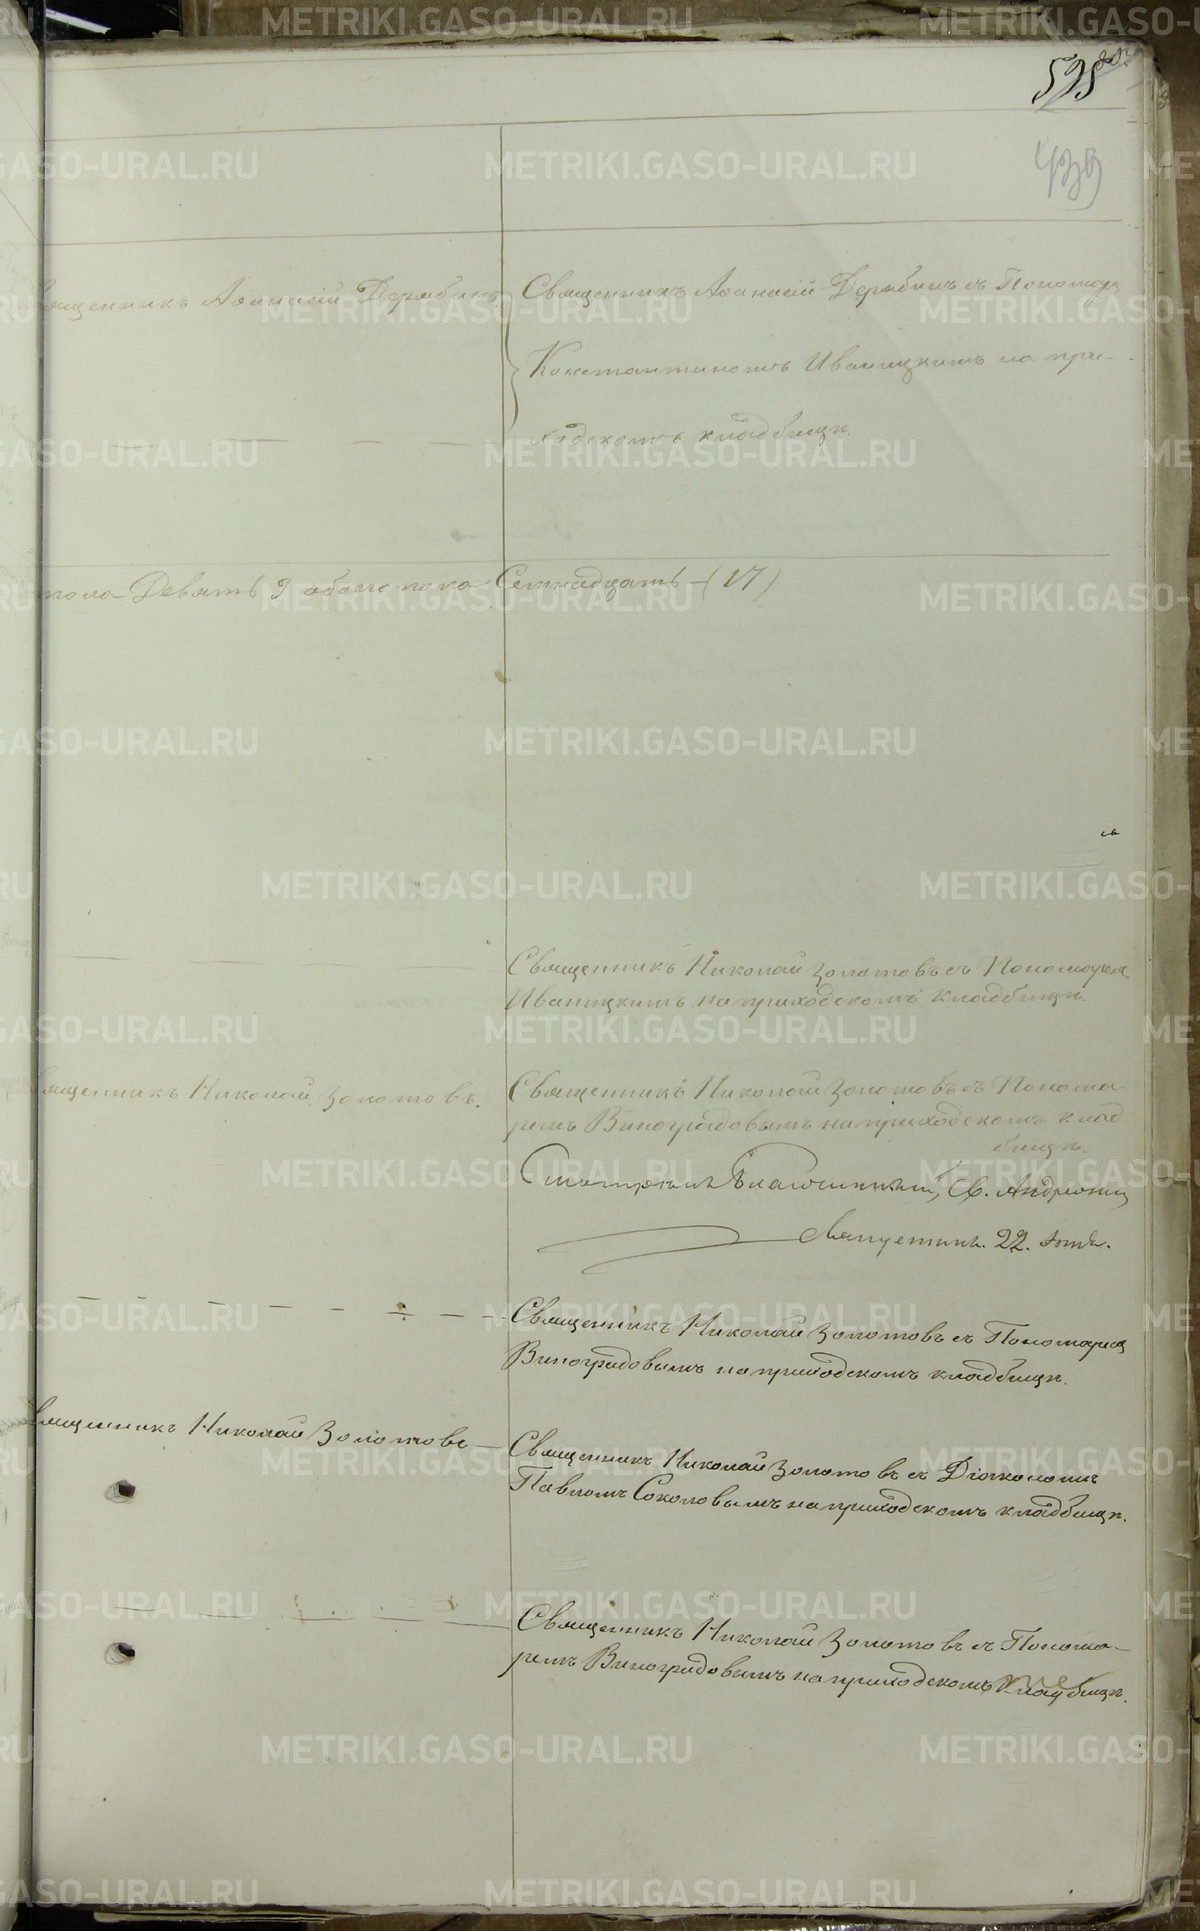 595
439
вященникъ Аѳанасій Дерябинъ
Священникъ Аѳанасій Дерябинъ съ Пономаремъ
Константиномъ Иваницкимъ на при-
ходскомъ кладбищѣ.
пола Девять 9 обоего пола Семнадцать - (17)
Священникъ Николай Золотовъ съ Пономаремъ
Иваницкимъ на приходскомъ кладбищѣ.
вященникъ Николай Золотовъ.
Священникъ Николай Золотовъ съ Понома-
ремъ Виноградовымъ на приходскомъ клад
бищѣ.
Смотрѣлъ Благочинный, Св. Андроникъ
22.
Священникъ Николай Золотовъ съ Пономаремъ
Виноградовымъ на приходскомъ кладбищѣ.
вященникъ Николай Золотовъ
Священникъ Николай Золотовъ съ Діакономъ
Павломъ Соколовымъ на приходскомъ кладбищѣ.
Священникъ Николай Золотовъ съ Понома-
ремъ Виноградовымъ на приходскомъ кладбищѣ.
METRIKI.GASO-URAL.RU